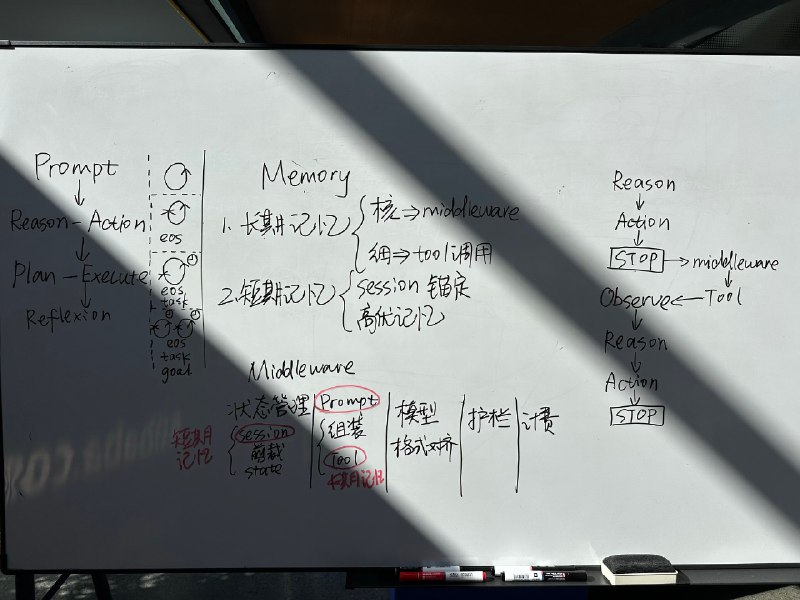 Prompt
Reason - Action
Plan - Execute
Reflexion
eos
eos
task
eos
task
goal
Memory
1. 长期记忆
核 ⇒ middleware
细 ⇒ tool调用
2. 短期记忆
session 锚定
高优记忆
Middleware
状态管理
session
剪裁
state
短期
记忆
Prompt
组装
Tool
长期记忆
模型
格式对齐
护栏
计费
Reason
Action
STOP → middleware
Observe ← Tool
Reason
Action
STOP